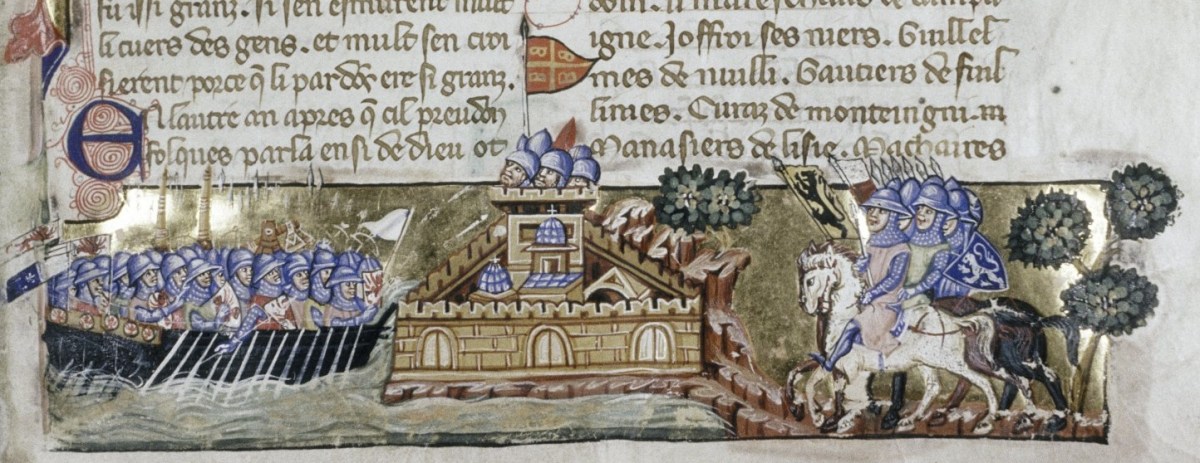 fu issi granz. si sen esmurent mult
li cuers des gens. et mult sen croi
sierent porce q̃ li pardõs ere si granz.
En lautre an apres q̃ cil preudõ
folques parla ensi de dieu ot
igne. Joffroi ses niers. Guillel
mes de nuilli. Gautiers de fuil
limes. Euraz de monteuigni. m
Manasiers de lisle. Machaires